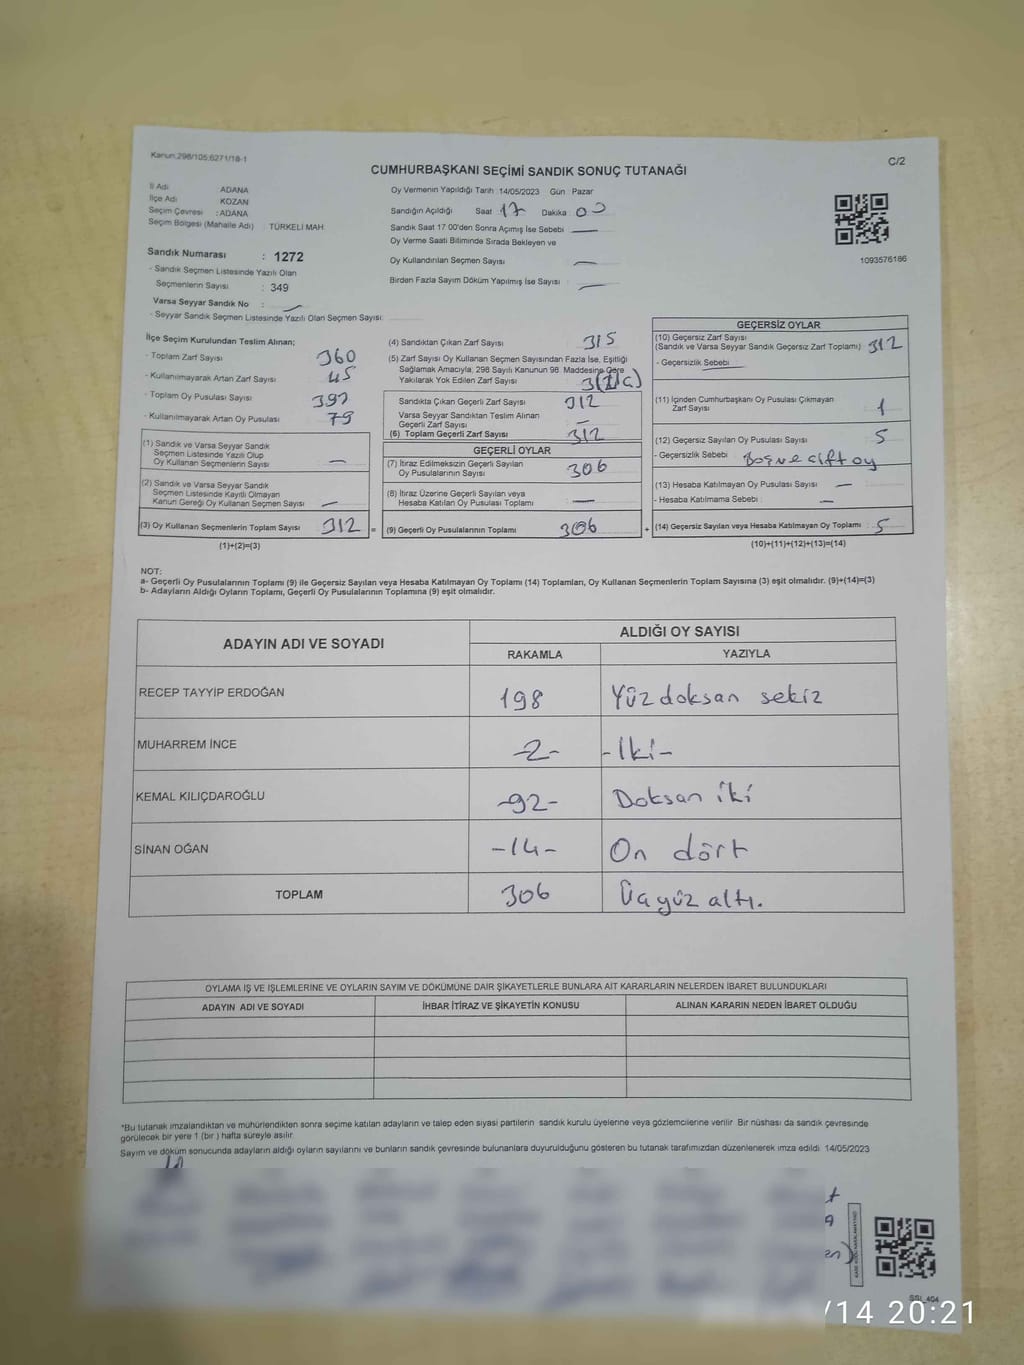 Kanun:298/105;6271/18-1
C/2
CUMHURBAŞKANI SEÇİMİ SANDIK SONUÇ TUTANAĞI
İl Adı ADANA
İlçe Adı KOZAN
Seçim Çevresi : ADANA
Seçim Bölgesi (Mahalle Adı) TÜRKELİ MAH.
Oy Vermenin Yapıldığı Tarih :14/05/2023 Gün : Pazar
Sandığın Açıldığı Saat 17 Dakika : 00
Sandık Saat 17 00'den Sonra Açımış İse Sebebi
Oy Verme Saati Bitiminde Sırada Bekleyen ve
Oy Kullandırılan Seçmen Sayısı
Birden Fazla Sayım Döküm Yapılmış İse Sayısı
1093576186
Sandık Numarası : 1272
- Sandık Seçmen Listesinde Yazılı Olan
Seçmenlerin Sayısı : 349
Varsa Seyyar Sandık No :
- Seyyar Sandık Seçmen Listesinde Yazılı Olan Seçmen Sayısı:
İlçe Seçim Kurulundan Teslim Alınan;
- Toplam Zarf Sayısı 360
- Kullanılmayarak Artan Zarf Sayısı : 45
- Toplam Oy Pusulası Sayısı 392
- Kullanılmayarak Artan Oy Pusulası 79
(1) Sandık ve Varsa Seyyar Sandık
Seçmen Listesinde Yazılı Olup
Oy Kullanan Seçmenlerin Sayısı —
(2) Sandık ve Varsa Seyyar Sandık
Seçmen Listesinde Kayıtlı Olmayan
Kanun Gereği Oy Kullanan Seçmen Sayısı —
(3) Oy Kullanan Seçmenlerin Toplam Sayısı 312 =
(1)+(2)=(3)
(4) Sandıktan Çıkan Zarf Sayısı 315
(5) Zarf Sayısı Oy Kullanan Seçmen Sayısından Fazla İse, Eşitliği
Sağlamak Amacıyla; 298 Sayılı Kanunun 98. Maddesine Göre
Yakılarak Yok Edilen Zarf Sayısı
Sandıkta Çıkan Geçerli Zarf Sayısı 312
Varsa Seyyar Sandıktan Teslim Alınan
Geçerli Zarf Sayısı —
(6) Toplam Geçerli Zarf Sayısı 312
GEÇERLİ OYLAR
(7) İtiraz Edilmeksizin Geçerli Sayılan
Oy Pusulalarının Sayısı 306
(8) İtiraz Üzerine Geçerli Sayılan veya
Hesaba Katılan Oy Pusulası Toplamı —
(9) Geçerli Oy Pusulalarının Toplamı 306 +
GEÇERSİZ OYLAR
(10) Geçersiz Zarf Sayısı
(Sandık ve Varsa Seyyar Sandık Geçersiz Zarf Toplamı) 312
- Geçersizlik Sebebi
(11) İçinden Cumhurbaşkanı Oy Pusulası Çıkmayan
Zarf Sayısı 1
(12) Geçersiz Sayılan Oy Pusulası Sayısı : 5
- Geçersizlik Sebebi Boş ve çift oy
(13) Hesaba Katılmayan Oy Pusulası Sayısı —
- Hesaba Katılmama Sebebi : —
(14) Geçersiz Sayılan veya Hesaba Katılmayan Oy Toplamı : 5
(10)+(11)+(12)+(13)=(14)
NOT:
a- Geçerli Oy Pusulalarının Toplamı (9) ile Geçersiz Sayılan veya Hesaba Katılmayan Oy Toplamı (14) Toplamları, Oy Kullanan Seçmenlerin Toplam Sayısına (3) eşit olmalıdır. (9)+(14)=(3)
b- Adayların Aldığı Oyların Toplamı, Geçerli Oy Pusulalarının Toplamına (9) eşit olmalıdır.
ADAYIN ADI VE SOYADI ALDIĞI OY SAYISI
RAKAMLA YAZIYLA
RECEP TAYYİP ERDOĞAN 198 Yüz doksan sekiz
MUHARREM İNCE -2- -İki-
KEMAL KILIÇDAROĞLU -92- Doksan iki
SİNAN OĞAN -14- On dört
TOPLAM 306 Üçyüz altı.
OYLAMA İŞ VE İŞLEMLERİNE VE OYLARIN SAYIM VE DÖKÜMÜNE DAİR ŞİKAYETLERLE BUNLARA AİT KARARLARIN NELERDEN İBARET BULUNDUKLARI
ADAYIN ADI VE SOYADI İHBAR İTİRAZ VE ŞİKAYETİN KONUSU ALINAN KARARIN NEDEN İBARET OLDUĞU
*Bu tutanak imzalandıktan ve mühürlendikten sonra seçime katılan adayların ve talep eden siyasi partilerin sandık kurulu üyelerine veya gözlemcilerine verilir Bir nüshası da sandık çevresinde
görülecek bir yere 1 (bir ) hafta süreyle asılır
Sayım ve döküm sonucunda adayların aldığı oyların sayılarını ve bunların sandık çevresinde bulunanlara duyurulduğunu gösteren bu tutanak tarafımızdan düzenlenerek imza edildi 14/05/2023
SSI_404
/14 20:21